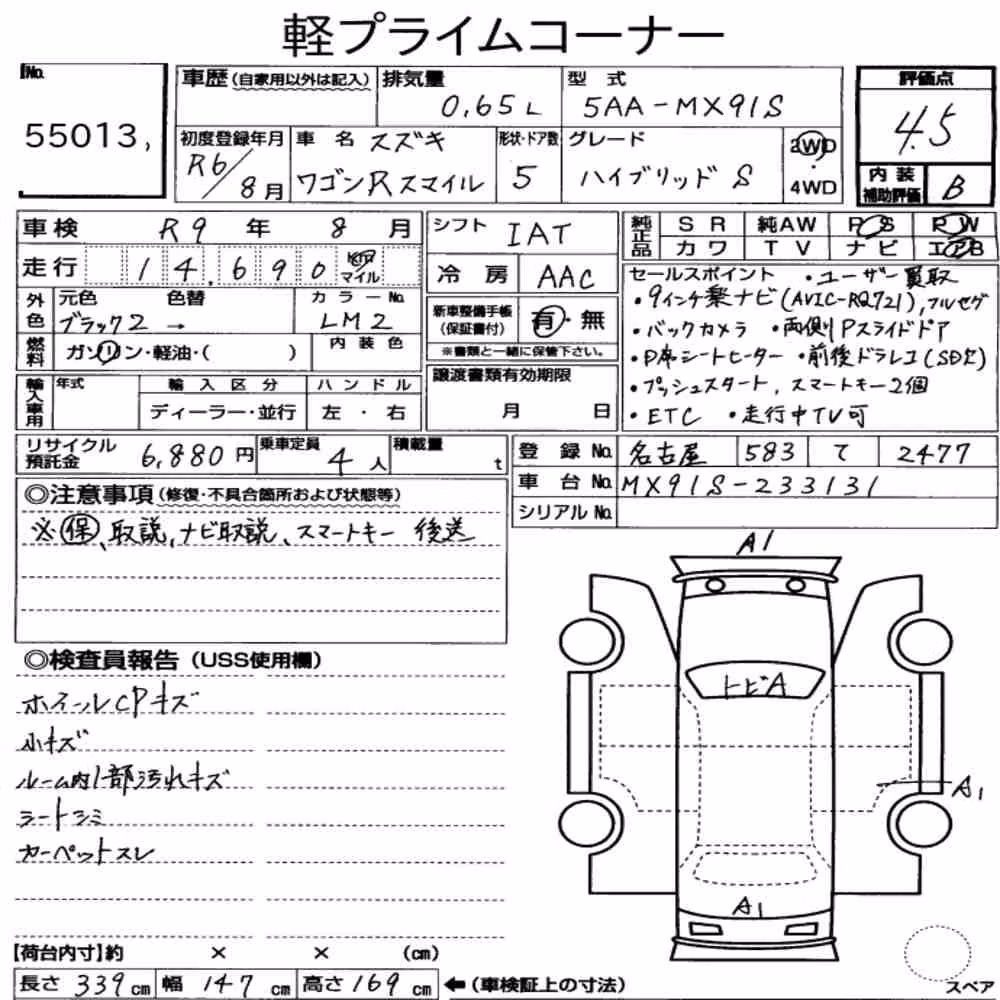 軽プライムコーナー
No. 55013,
車歴(自家用以外は記入) 排気量 0.65L 型式 5AA-MX91S 評価点 4.5
初度登録年月 R6/8月 車名 スズキ ワゴンRスマイル 形状・ドア数 5 グレード ハイブリッド S 2WD・4WD
内装補助評価 B
車検 R9年 8月 シフト IAT 純正品 SR 純AW PS PW
走行 14,690 km マイル 冷房 AAC カワ TV ナビ エアB
外色 元色 ブラック2 → 色替 カラーNo. LM2 新車整備手帳(保証書付) 有・無
※書類と一緒に保管下さい。
燃料 ガソリン・軽油・( ) 内装色
輸入車用 年式 輸入区分 ディーラー・並行 ハンドル 左・右
譲渡書類有効期限 月 日
セールスポイント ・ユーザー買取
・9インチ製ナビ(AVIC-RQ721),フルセグ
・バックカメラ ・両側Pスライドドア
・D席シートヒーター ・前後ドラレコ(SD欠)
・プッシュスタート、スマートキー2個
・ETC ・走行中TV可
リサイクル預託金 6,880円 乗車定員 4人 積載量 t
登録No. 名古屋 583 て 2477
車台No. MX91S-233131
シリアルNo.
◎注意事項(修復・不具合箇所および状態等)
※保、取説、ナビ取説、スマートキー 後送
◎検査員報告(USS使用欄)
ホイールCPキズ
小キズ
ルーム内1部汚れキズ
シートシミ
カーペットスレ
A1
トビA
A1
A1
【荷台内寸】約 × × (cm)
長さ 339cm 幅 147cm 高さ 169cm ←(車検証上の寸法)
スペア